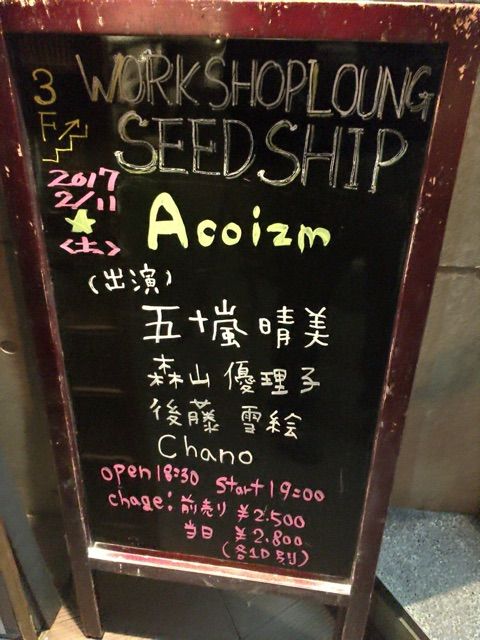 3F
WORKSHOPLOUNG
SEED SHIP
2017
2/11
★
<土>
Acoizm
(出演)
五十嵐晴美
森山 優理子
後藤 雪絵
Chano
open18:30 Start 19:00
chage: 前売り ¥2.500
当日 ¥2.800
(各1D別)